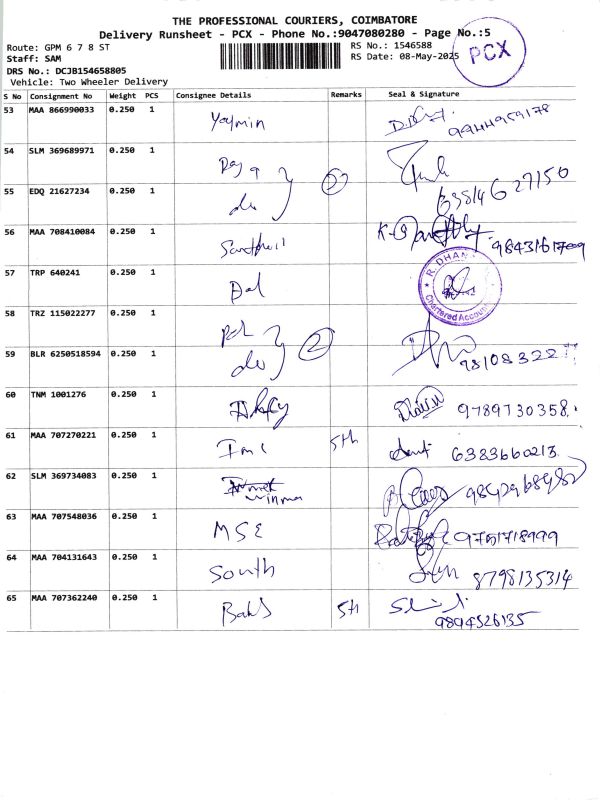 THE PROFESSIONAL COURIERS, COIMBATORE
Delivery Runsheet - PCX - Phone No.:9047080280 - Page No.:5
Route: GPM 6 7 8 ST
RS No.: 1546588
Staff: SAM
RS Date: 08-May-2025
PCX
DRS No.: DCJB154658805
Vehicle: Two Wheeler Delivery
S No Consignment No Weight PCS Consignee Details Remarks Seal & Signature
53 MAA 866990033 0.250 1
54 SLM 369689971 0.250 1
55 EDQ 21627234 0.250 1
56 MAA 708410084 0.250 1 9843161709
57 TRP 640241 0.250 1 R. DHAN
Chartered Accoun
58 TRZ 115022277 0.250 1
59 BLR 6250518594 0.250 1 2
60 TNM 1001276 0.250 1 9789730358.
61 MAA 707270221 0.250 1 5th 6383660213
62 SLM 369734083 0.250 1
63 MAA 707548036 0.250 1 MSE 9751718999
64 MAA 704131643 0.250 1 South 8798135314
65 MAA 707362240 0.250 1 5th
9894526135